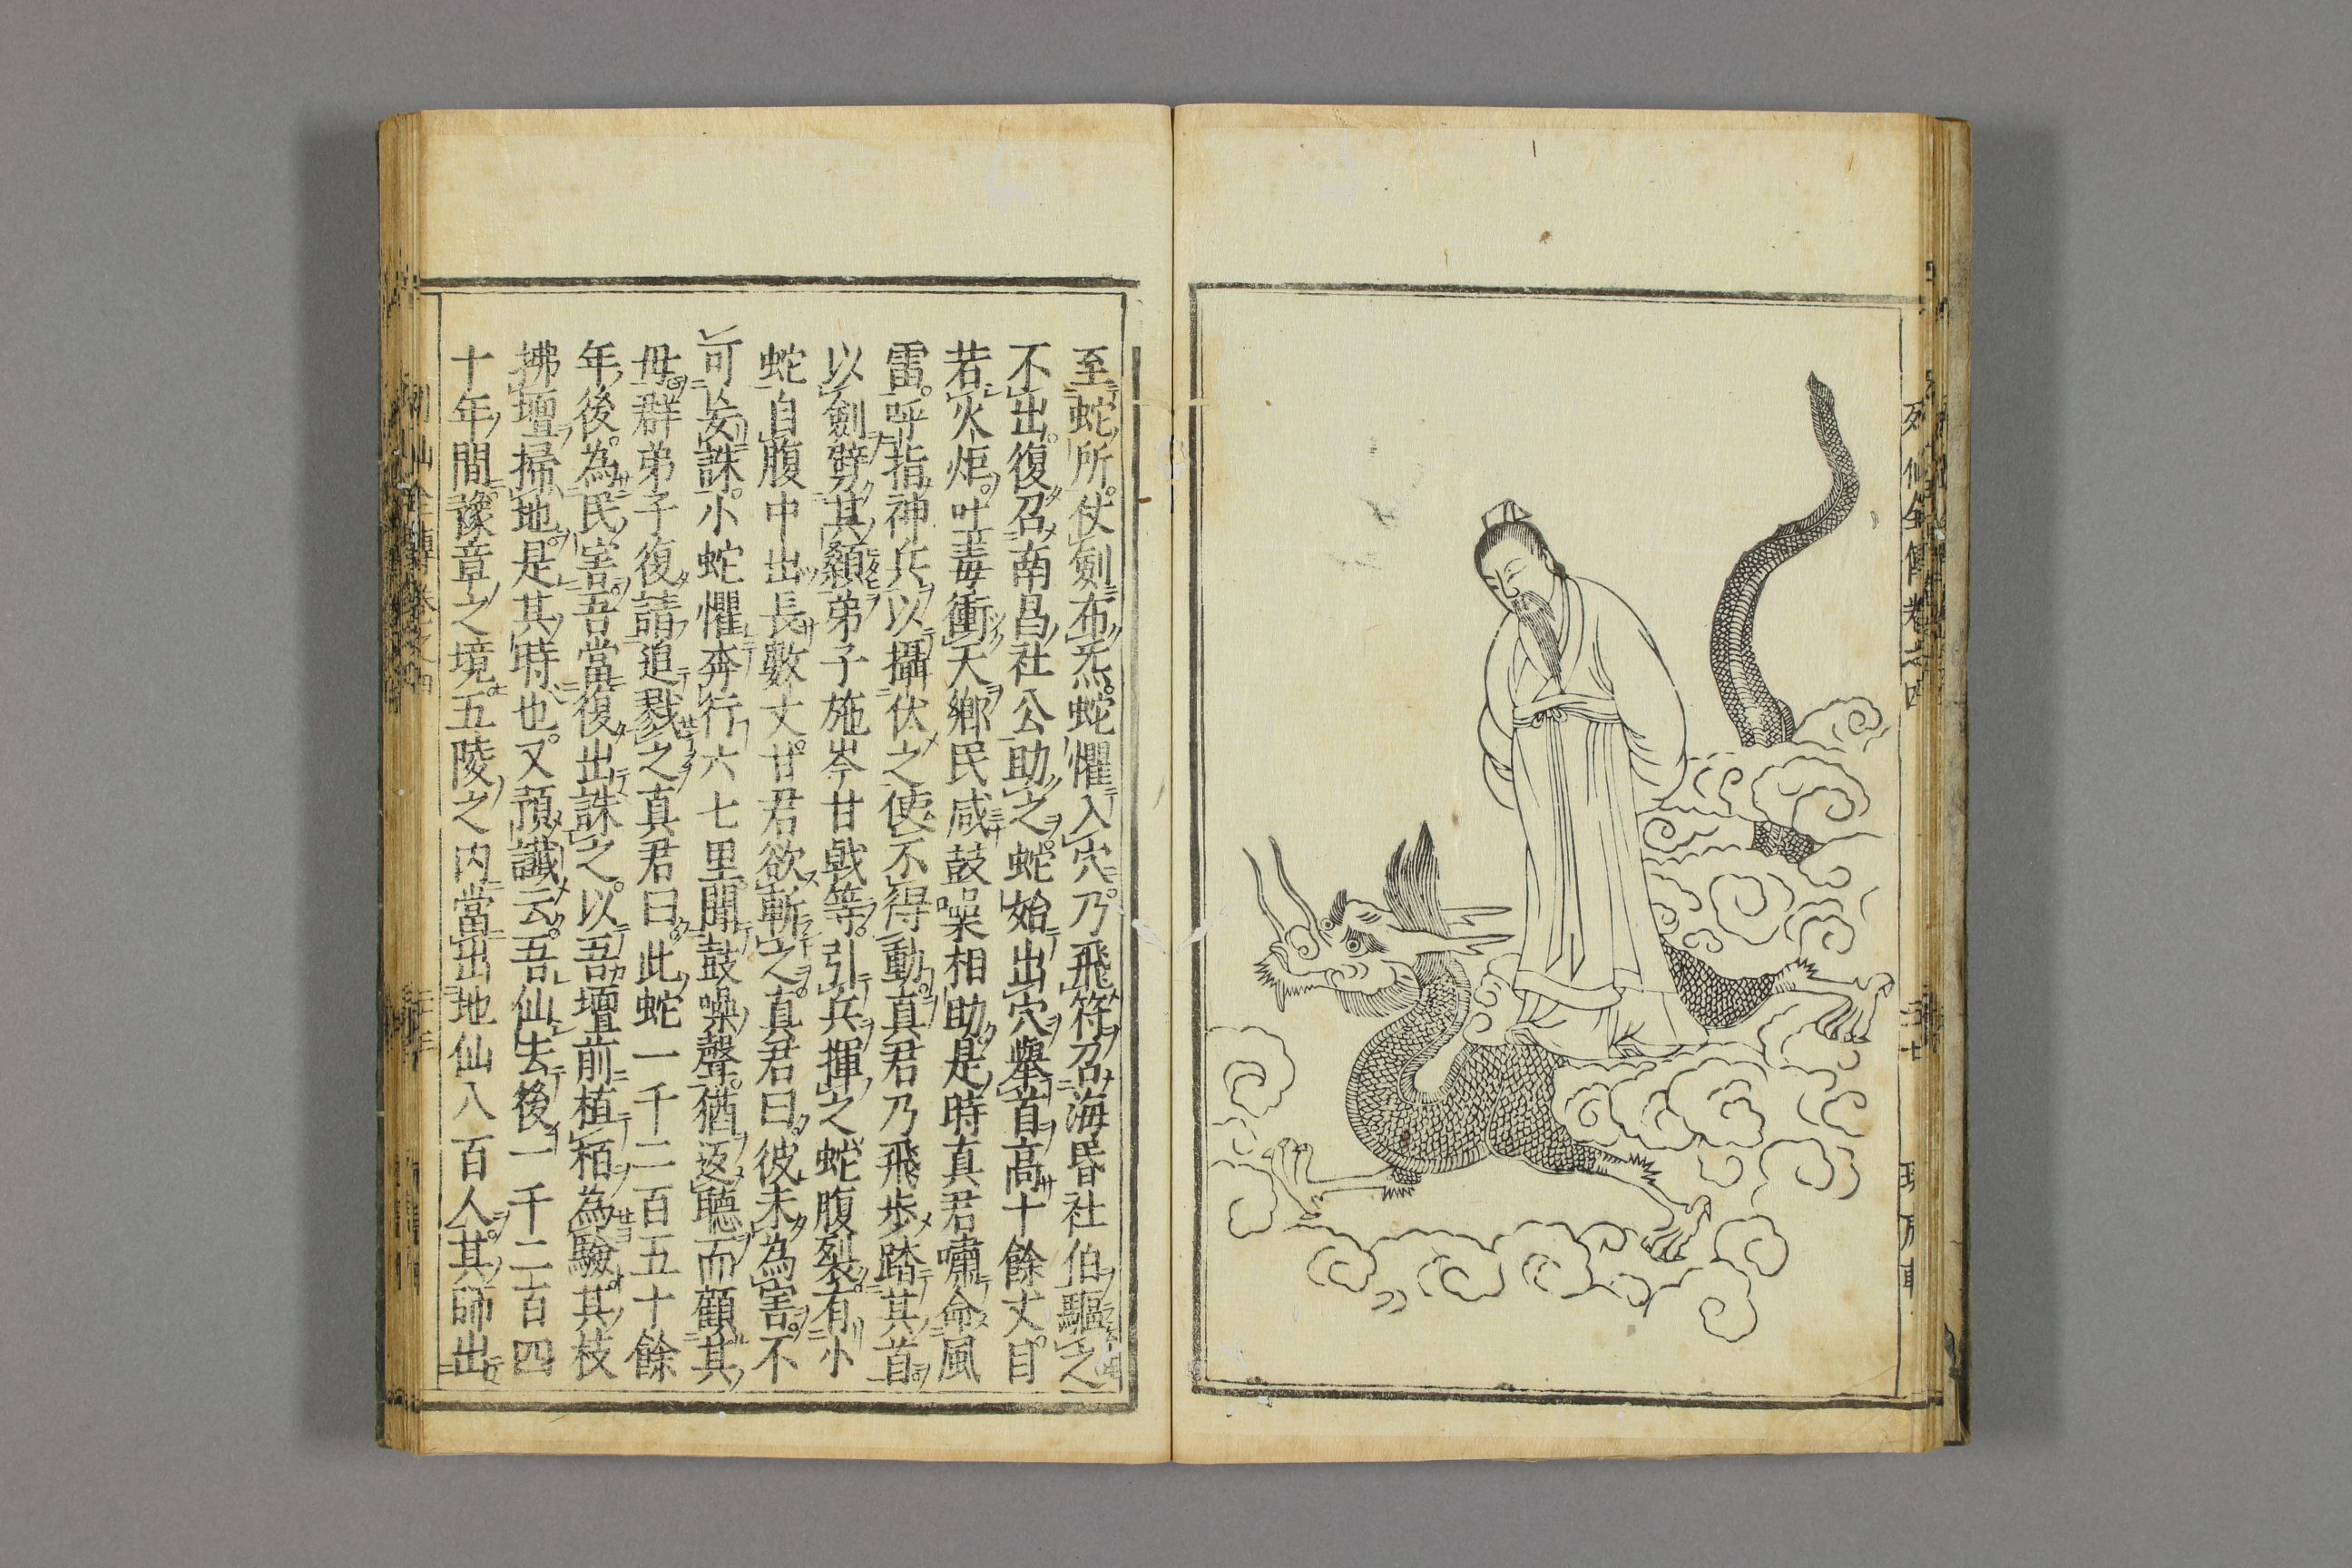 列仙全傳卷之四
至蛇所。仗劍布炁。蛇懼入穴。乃飛符召海昏社伯驅之
不出。復召南昌社公助之。蛇始出穴舉首高十餘丈。目
若火炬。吐毒衝天。鄉民咸鼓噪相助。是時真君嘯命風
雷。呼指神兵以攝伏之。使不得動。真君乃飛步踏其首
以劍劈其顙。弟子施岑甘戟等。引兵揮之。蛇腹裂。有小
蛇自腹中出。長數丈。甘君欲斬之。真君曰。彼未為害。不
可妄誅。小蛇懼奔行六七里。聞鼓噪聲。猶返聽而顧其
母。群弟子復請追戮之。真君曰。此蛇一千二百五十餘
年後。為民害。吾當復出誅之。以吾壇前植栢為驗。其枝
拂壇掃地。是其時也。又預讖云。吾仙去後。一千二百四
十年間。豫章之境。五陵之内。當出地仙八百人。其師出